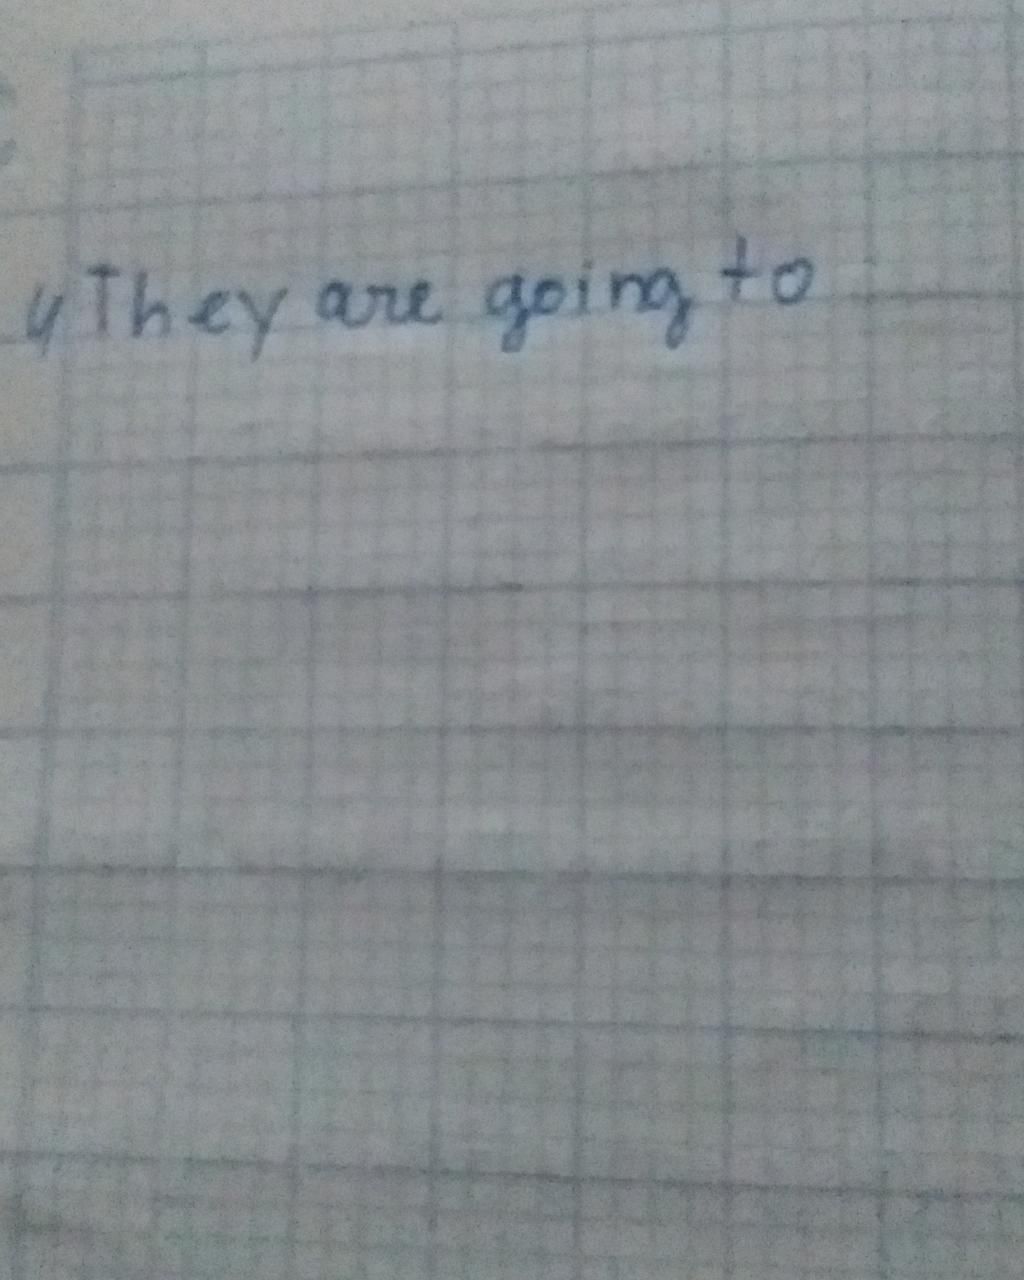 4 They are going to